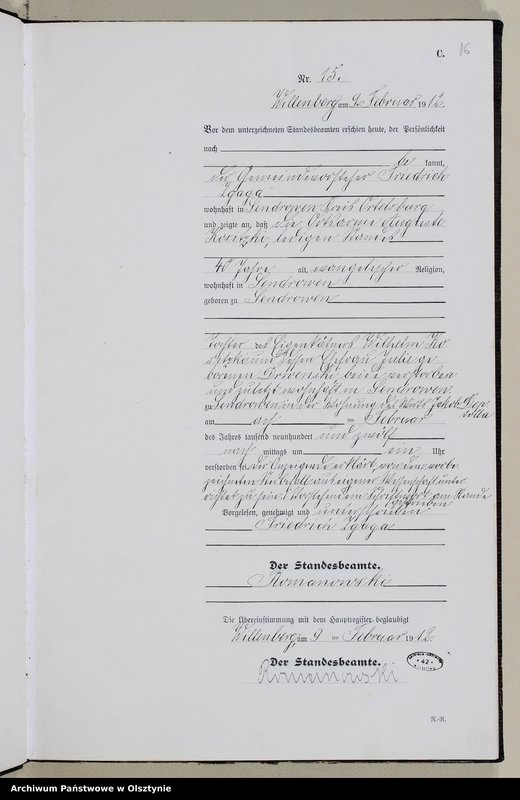 C.
16
Nr. 15.
Willenberg am 9. Februar 1912.
Vor dem unterzeichneten Standesbeamten erschien heute, der Persönlichkeit
nach
be kannt,
der Gemeindevorsteher Friedrich
Zgaga
wohnhaft in Sendrowen Kreis Ortelsburg
und zeigte an, daß die Ortsarme Auguste
ledigen Standes
40 Jahre alt, evangelischer Religion,
wohnhaft in Sendrowen
geboren zu Sendrowen
Tochter des Eigenkätners Wilhelm Ko
und dessen Ehefrau Julie ge
borenen beide verstorben
und zuletzt wohnhaft in Sendrowen
zu Sendrowen in der Wohnung des Wirts Jakob
am acht ten Februar
des Jahres tausend neunhundert und zwölf
nach mittags um ein Uhr
verstorben sei. der Anzeigende erklärt, von dem vorbe
zeichneten Sterbefall aus eigener Wissenschaft unter
richtet zu sein. Vorstehend ein Druckwort am Rande
gestrichen
Vorgelesen, genehmigt und unterschrieben
Friedrich Zgaga
Der Standesbeamte.
Romanowski
Die Übereinstimmung mit dem Hauptregister beglaubigt
Willenberg, am 9 ten Februar 1912.
Der Standesbeamte.
Romanowski
42
N.-R.
Archiwum Państwowe w Olsztynie